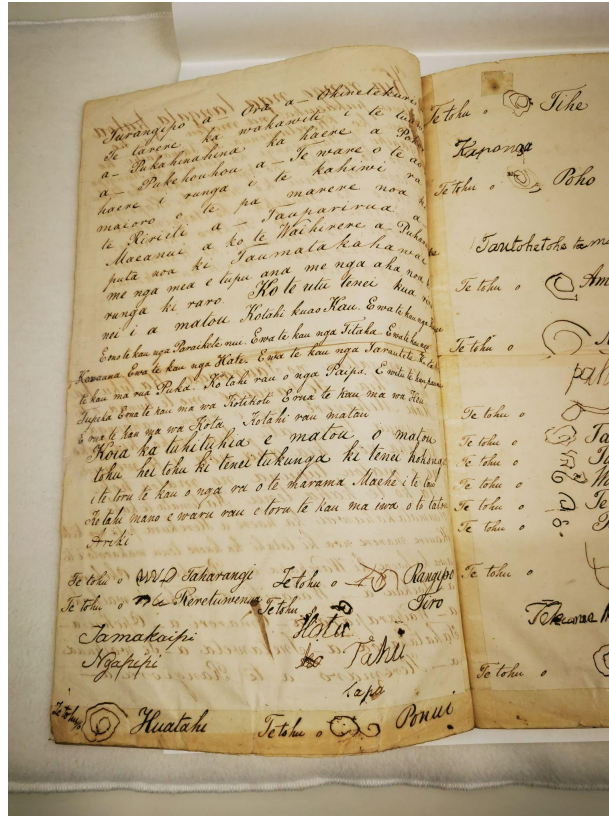 Turangipo a Ora a - Ohinetokurei
Te tarere ka wakawiti i te
a - Pukahinahina ka haere a
a - Pukehouhou a - Te ware o te ao
haere i runga i te kahiwi ra
maioro o te pa marere noa
te Ririiti a - Tauparirua a
Maeanui a ko te Waihirere a
puta noa ki Taumatakahawai
me nga mea e tupu ana me nga aha noa
runga ki raro. Ko te utu tenei kua
nei i a matou Kotahi kuao Kau. E wa te kau nga
E ono te kau nga Paraikete nui. E wa te kau nga Titaha. E wa te kau nga
Karauna. E wa te kau nga Hate. E wa te kau nga Tarautete.
te kau ma rua Puka. Kotahi rau o nga Paipa. E witu te kau pauna
Tupeka E ma te kau ma wa Kotikoti E rua te kau ma wa Heu
E rua te kau ma wa Kota. Kotahi rau matau
Koia ka tuhituhia e matou o matou
tohu hei tohu ki tenei tukunga ki tenei hokonga
i te toru te kau o nga ra o te marama Maehe i te tau
Kotahi mano e waru rau e toru te kau ma iwa o to tatou
Ariki
Te tohu o Taharangi Te tohu o Rangipo
Te tohu o Reretuwenua Te tohu Tiro
Tamakaipi Hatu
Ngapipi Tahu
Tapa
Te tohu o Huatahi Te tohu o Ponui
Te tohu o Tihe
Kaponga
Te tohu o Poho
Tautohetohe ta
Te tohu o Am
Te tohu o
pah
Te tohu o Ta
Te tohu o
Te tohu o
Te tohu o Te
Te tohu o
Te tohu o
Te tohu o